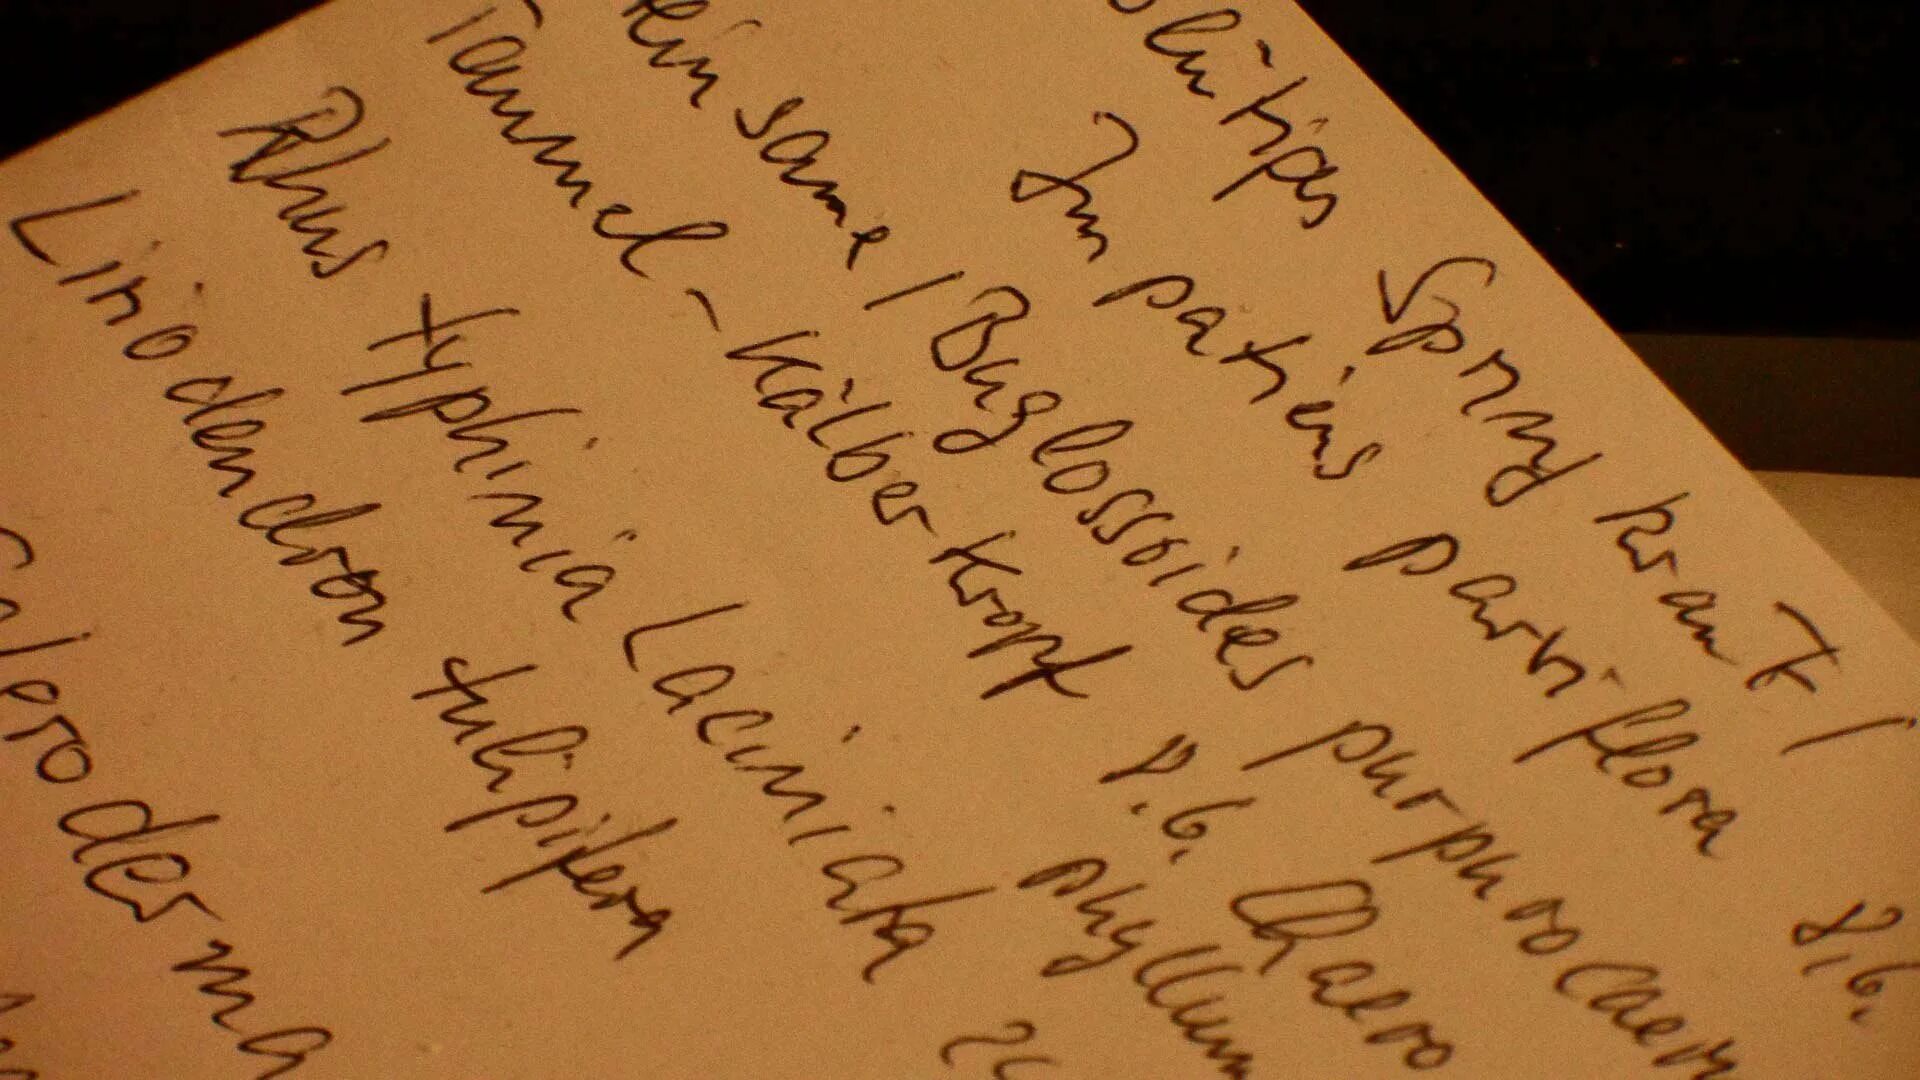 blütiges Springkraut /
Impatiens parviflora 8.6.
einsame / Buglossoides purpurocaeru
Taumel-Kälber-Kropf 8.6. Chaero
phyllum
Rhus typhinia Laciniata
Liriodendron tulipifera
leroderma